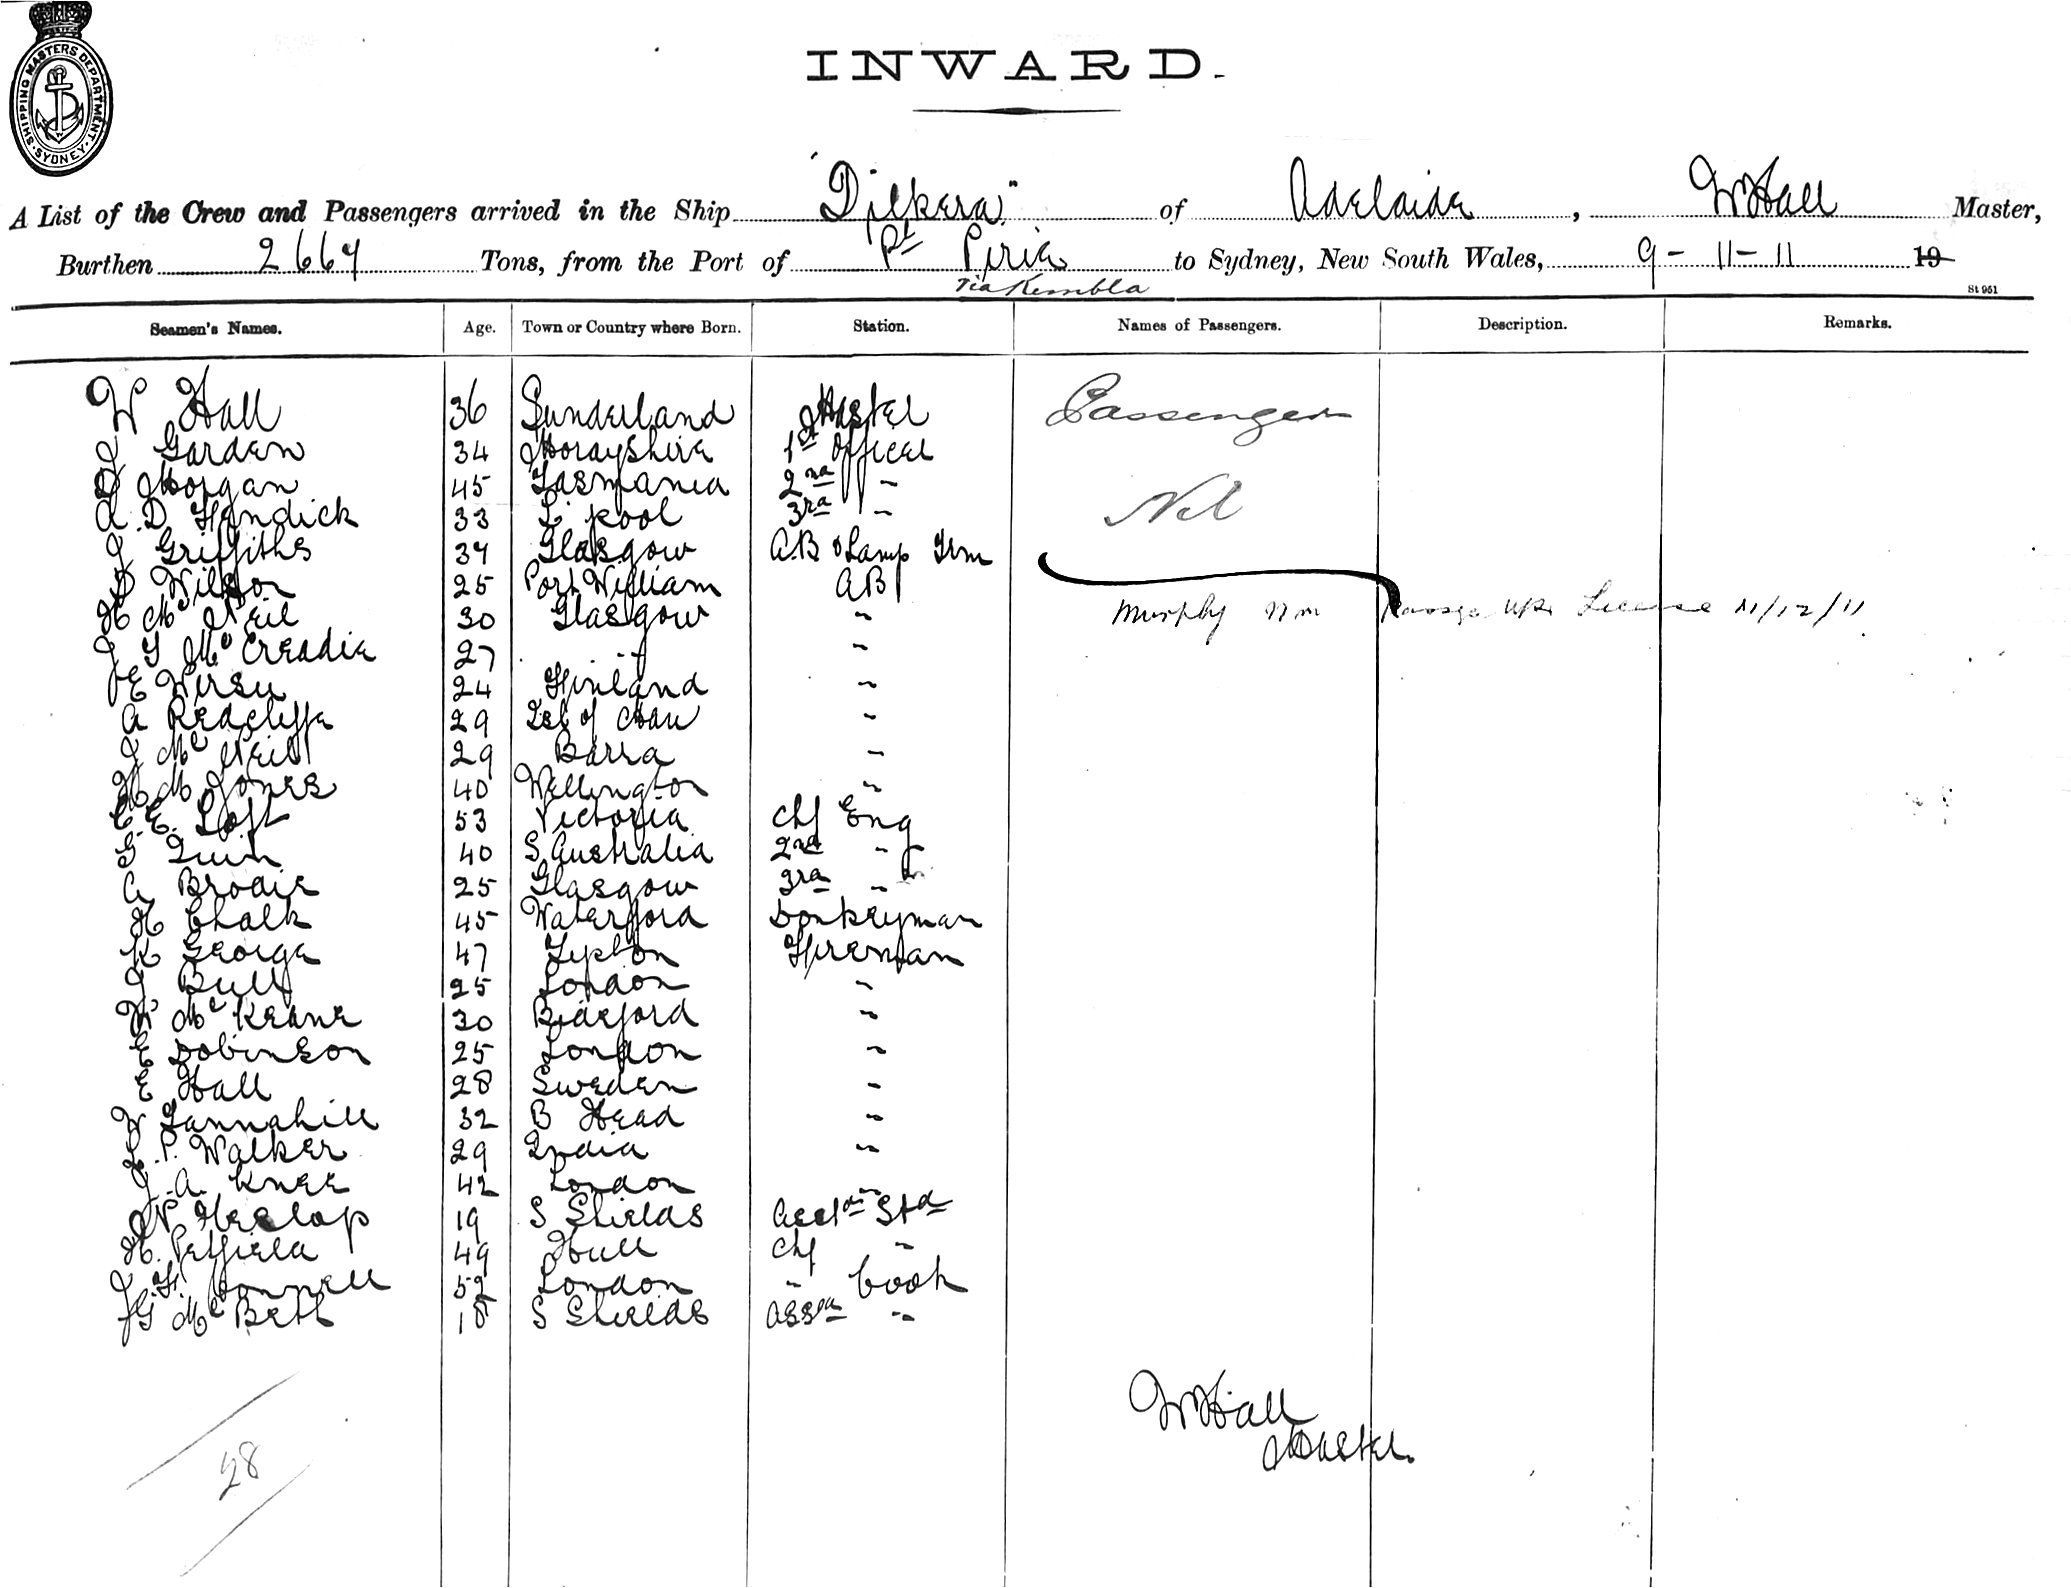 SHIPPING MASTERS DEPARTMENT. SYDNEY.
INWARD.
A List of the Crew and Passengers arrived in the Ship "Dilkera" of Adelaide, W Hall Master,
Burthen 2664 Tons, from the Port of Pt Pirie to Sydney, New South Wales, 9-11-11 19
via Kembla
St 951
Seamen's Names. Age. Town or Country where Born. Station. Names of Passengers. Description. Remarks.
W Hall 36 Sunderland Master Passengers
J Garden 34 Morayshire 1st Officer
D Morgan 45 Tasmania 2nd " Nil
A. D. Hendick 33 L'pool 3rd "
J Griffiths 34 Glasgow A.B & Lamp Trm
D Wilson 25 Port William AB
H Mc Neil 30 Glasgow " Murphy License 11/12/11
J T Mc Creadie 27 " "
J E Wirsu 24 Finland "
A Redcliffe 29 Isl of Man "
J Mc Neil 29 Barra "
H M Jones 40 Wellington "
C. E. Loft 53 Victoria Chf Eng
G Quin 40 S Australia 2nd "
A Brodie 25 Glasgow 3rd "
H Chalk 45 Waterford Donkeyman
K George 47 Fireman
J Bull 25 London "
W Mc Keane 30 Bideford "
E Dobinson 25 London "
E Hall 28 Sweden "
W Tannahill 32 B Head "
J. P. Walker 29 India "
J. A. Knee 42 London "
N Heslop 19 S Shields Std
H. Petfield 49 Hull Chf "
J. H. Bonnell 52 London " Cook
J G Mc Beth 18 S Shields Asst "
W Hall
Master.
28